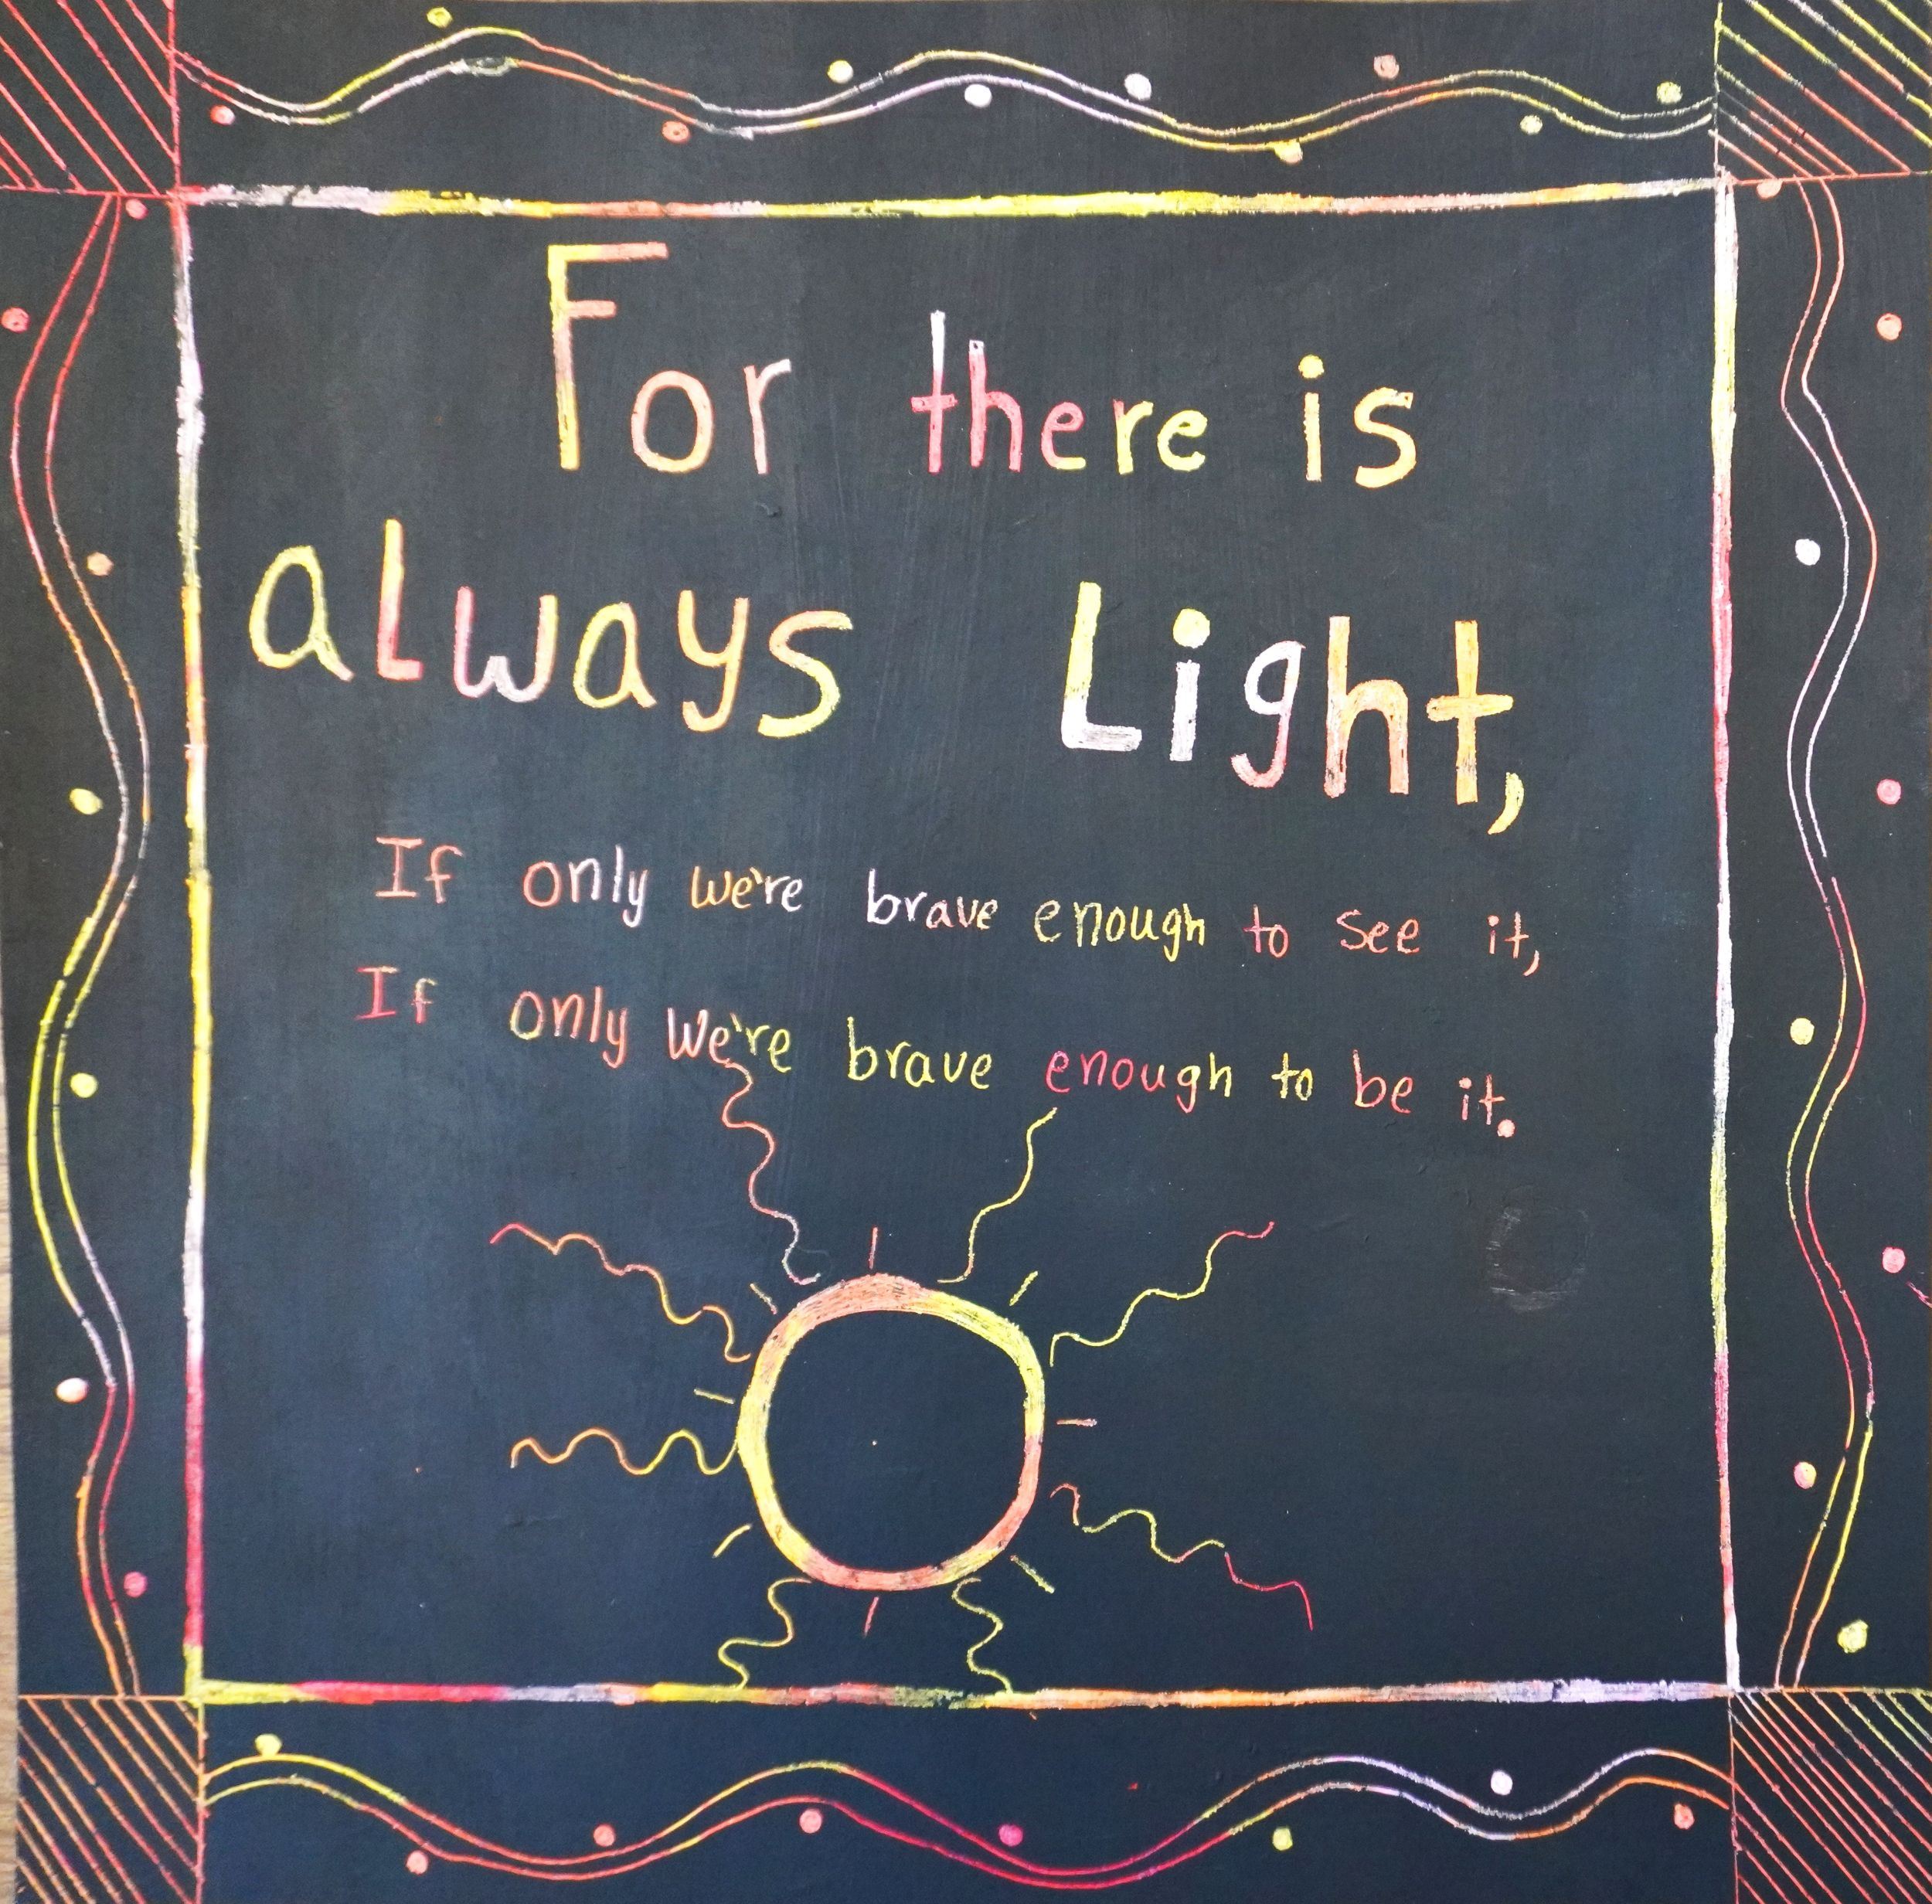 For there is
always Light,
If only we're brave enough to see it,
If only we're brave enough to be it.